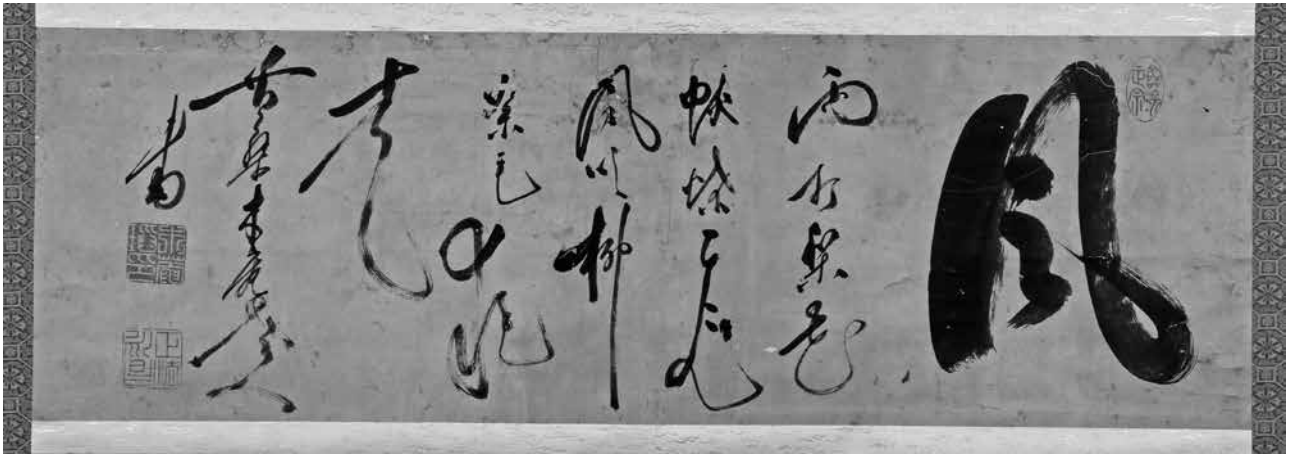 風
雨打梨花
蛺蝶飛
風吹柳
絮毛毬
走
黄檗
書